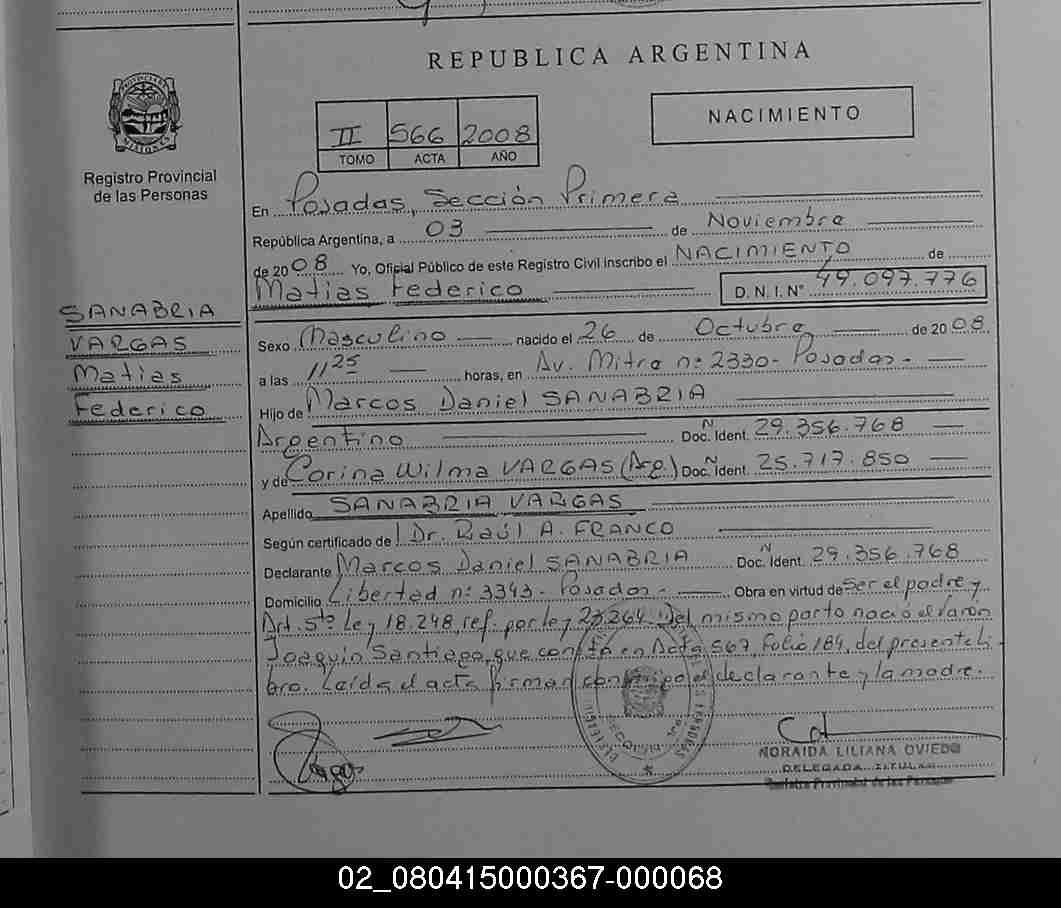 REPUBLICA ARGENTINA
II 566 2008
TOMO ACTA AÑO
NACIMIENTO
PROVINCIA DE MISIONES
Registro Provincial
de las Personas
SANABRIA
VARGAS
Matias
Federico
En Posadas, Sección Primera
República Argentina, a 03 de Noviembre
de 2008 Yo, Oficial Público de este Registro Civil inscribo el NACIMIENTO de
Matias Federico D.N.I. Nº 49.097.776
Sexo Masculino nacido el 26 de Octubre de 2008
a las 11 25 horas, en Av. Mitre n: 2330- Posadas-
Hijo de Marcos Daniel SANABRIA
Argentino Doc. Ident. N 29.356.768
y de Corina Wilma VARGAS (Arg.) Doc. Ident. N 25.717.850
Apellido SANABRIA VARGAS
Según certificado de Dr. Raúl A. FRANCO
Declarante Marcos Daniel SANABRIA Doc. Ident. N 29.356.768
Domicilio Libertad n: 3343- Posadas- Obra en virtud de Ser el padre y
Art. 5to Ley 18.248, ref. por ley 23.264. Del mismo parto nació el varón
Joaquin Santiago, que consta en Acta 567, Folio 184, del presente Li
bro. Leída el acta firman conmigo el declarante y la madre.
NORAIDA LILIANA OVIEDO
DELEGADA TITULAR
Registro Provincial de las Personas
02_080415000367-000068